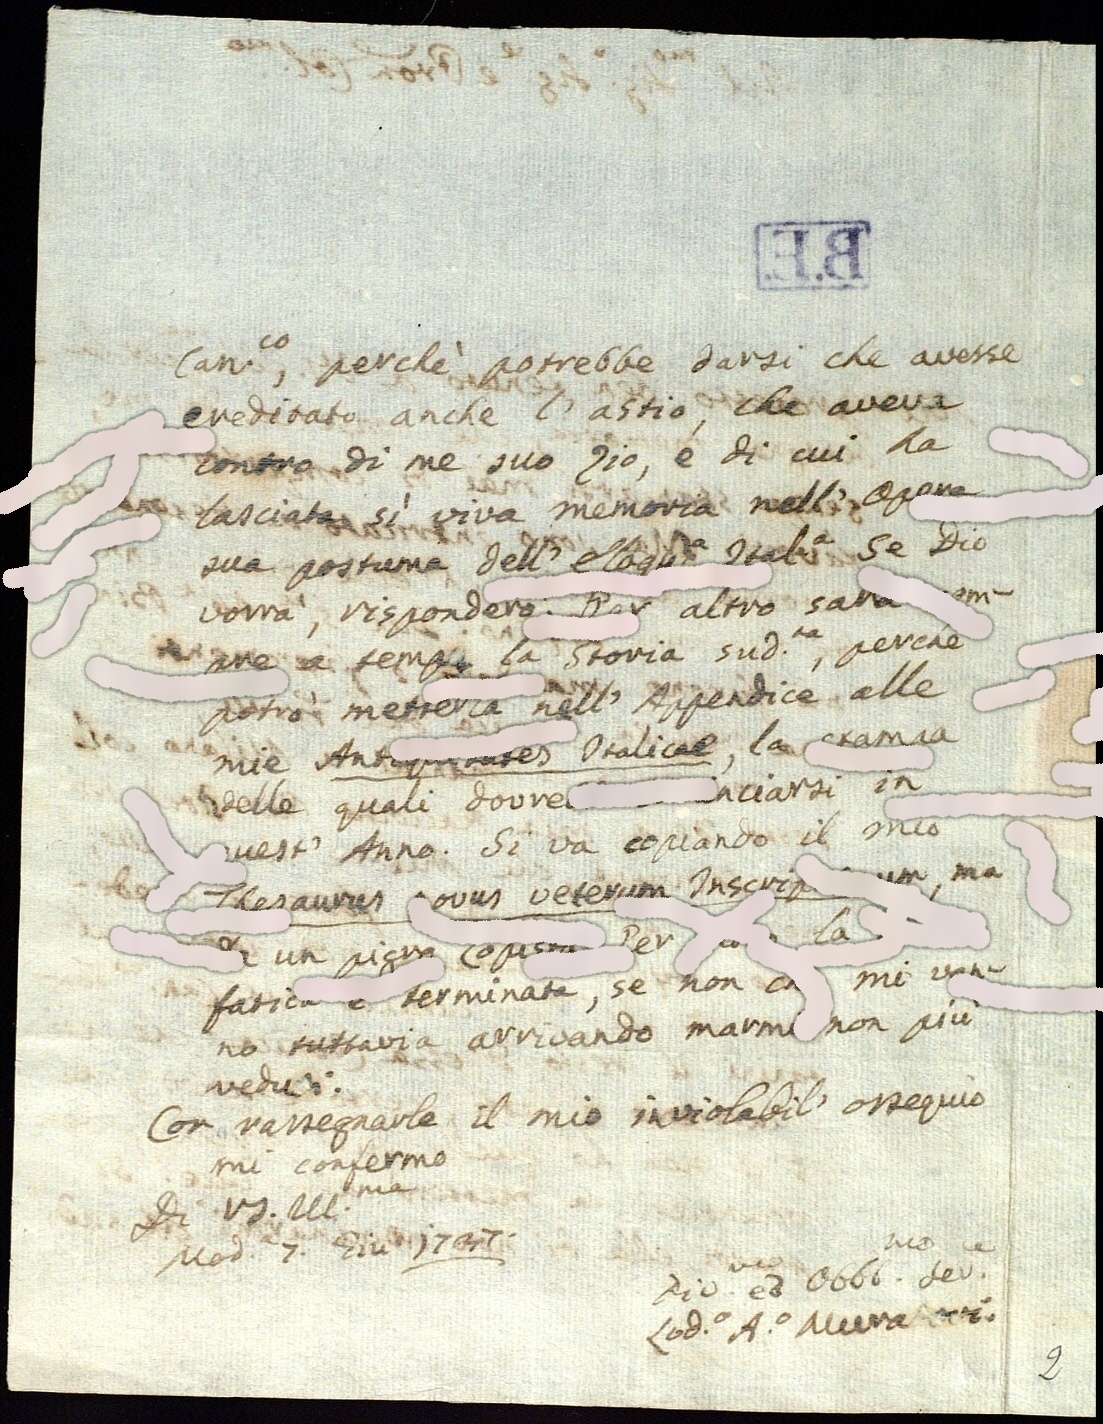 Can.co, perchè potrebbe darsi che avesse
ereditato anche l' astio, che aveva
contro di me suo Zio, e di cui ha
lasciata sì viva memoria nell' Opera
sua postuma dell' Eloqu.a Ital.a Se Dio
vorrà, risponderò. Per altro sarà
a tempo la Storia sud.ta, perchè
potrò metterla nell' Appendice alle
mie Antiquitates Italicae, la stampa
delle quali
quest' Anno. Si va copiando il mio
Thesaurus novus veterum Inscriptionum, ma
da un pigro copista. Per la
fatica è terminata, se non che mi van-
no tuttavia arrivando marmi non più
veduti.
Con rassegnarle il mio inviolabil' ossequio
mi confermo
Di VS. Ill.ma
Mod. 7. Giu 1737.
Div.mo ed Obbl.mo Ser.e
Lod.o A.o Muratori.
2